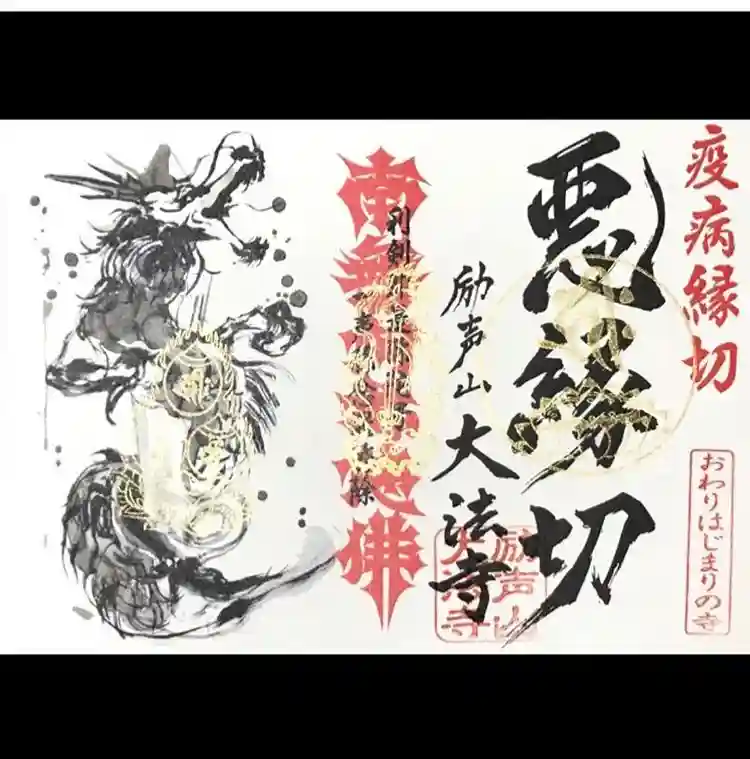 疫病縁切
おわりはじまりの寺
悪縁切
励声山
大法寺
励声山
大法寺
南無阿弥陀佛